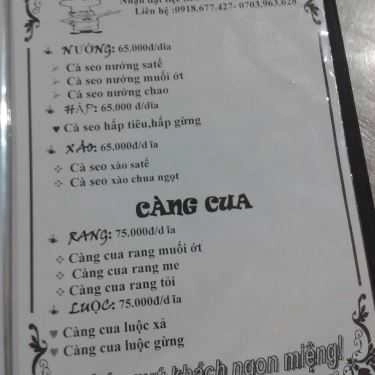 Nhận đặt tiệc
Liên hệ :0918.677.427- 0703.963.628
NƯỚNG: 65.000đ/dĩa
Cà seo nướng satế
Cà seo nướng muối ớt
Cà seo nướng chao
HẤP: 65.000 đ/dĩa
Cà seo hấp tiêu,hấp gừng
XÀO: 65.000đ/d ĩa
Cà seo xào satế
Cà seo xào chua ngọt
CÀNG CUA
RANG: 75.000đ/d ĩa
Càng cua rang muối ớt
Càng cua rang me
Càng cua rang tỏi
LUỘC: 75.000đ/d ĩa
Càng cua luộc xả
Càng cua luộc gừng
quý khách ngon miệng!